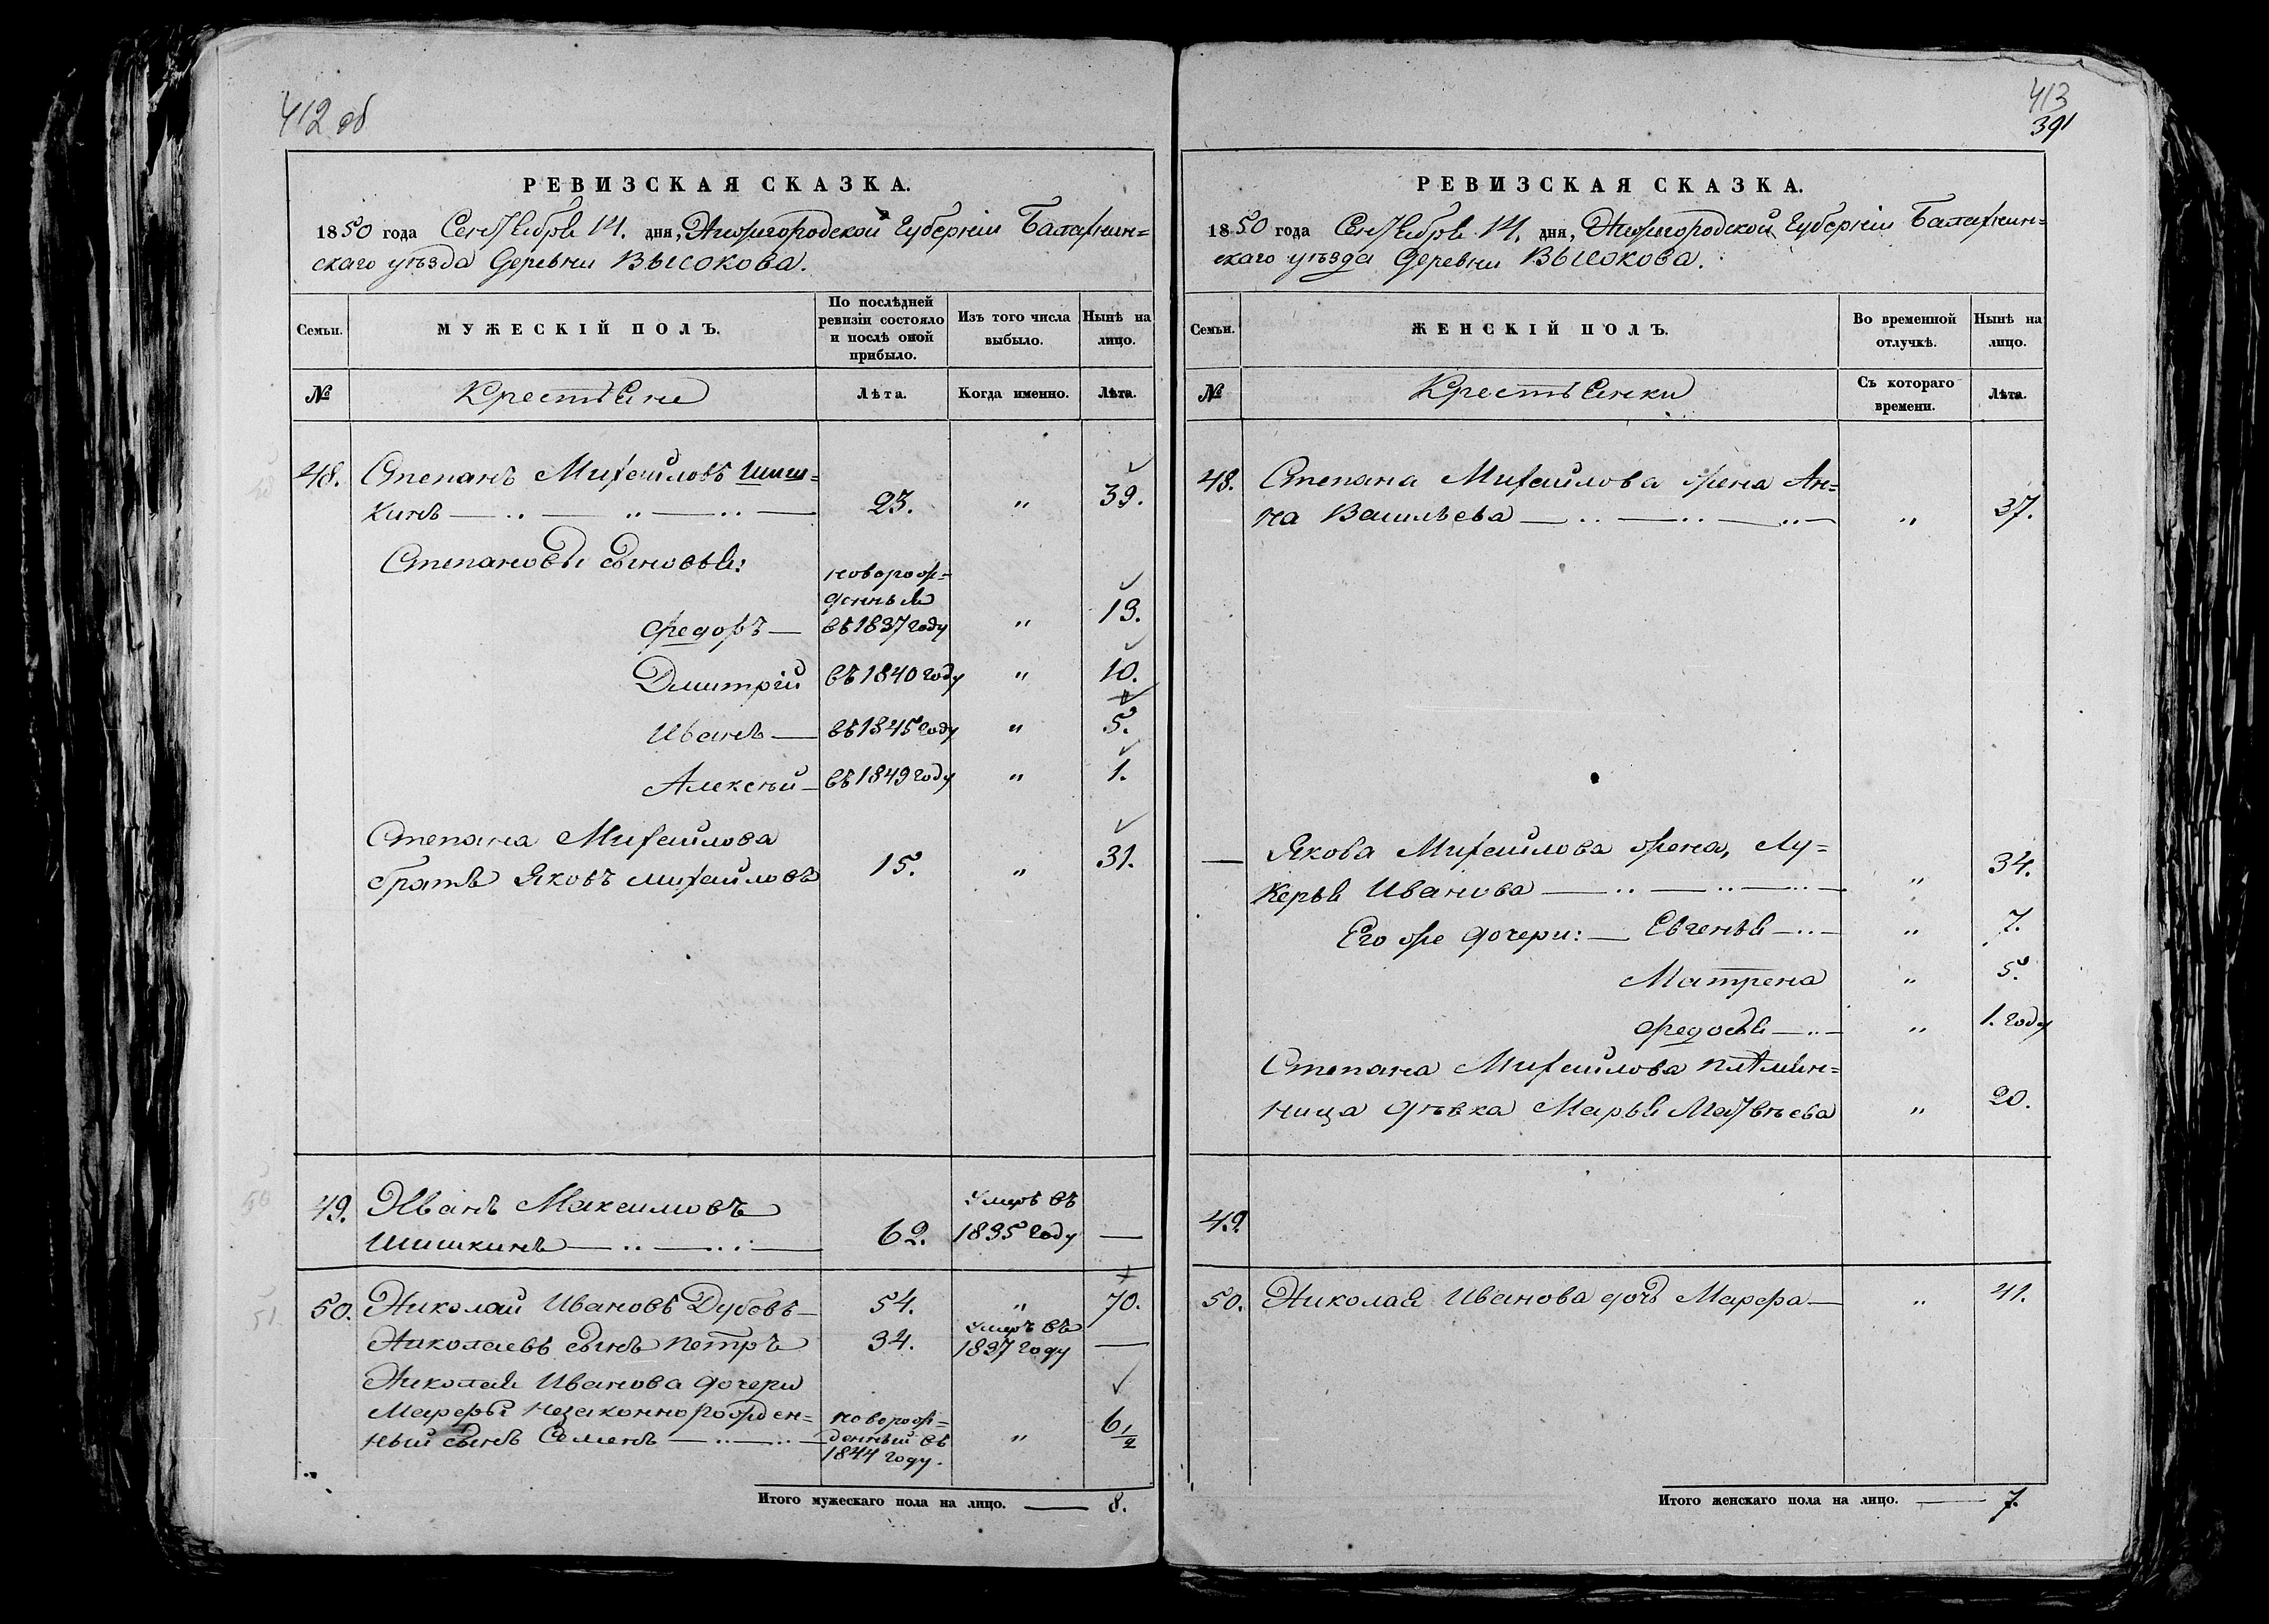 412 об
РЕВИЗСКАЯ СКАЗКА.
1850 года Сентября 14. дня, Нижегородской Губерніи Балахнин=
скаго уѣзда Деревни Высокова.
Семьи.
МУЖЕСКІЙ ПОЛЪ.
По послѣдней
ревизіи состояло
и послѣ оной
прибыло.
Изъ того числа
выбыло.
Нынѣ на
лицо.
№
Крестьяне
Лѣта.
Когда именно.
Лѣта.
48. Степанъ Михайловъ Шиш=
кинъ 23. „ 39.
Степановы сыновья:
новорож=
денные
Федоръ — въ 1837 году „ 13.
Дмитрій въ 1840 году „ 10.
Иванъ — въ 1845 году „ 5.
Алексѣй — въ 1849 году „ 1.
Степана Михайлова
братъ Яковъ Михайловъ 15. „ 31.
49. Иванъ Максимовъ
Шишкинъ 62. Умеръ въ
1835 году —
50. Николай Ивановъ Дубовъ — 54. „ 70.
Николаевъ сынъ Петръ 34. Умеръ въ
1837 году —
Николая Иванова дочери
Марфы незаконнорожден=
ный сынъ Семенъ новорож=
денный въ
1844 году. „ 6 1/2
Итого мужескаго пола на лицо. — 8.
413
391
РЕВИЗСКАЯ СКАЗКА.
1850 года Сентября 14. дня, Нижегородской Губерніи Балахнин=
скаго уѣзда Деревни Высокова.
Семьи.
ЖЕНСКІЙ ПОЛЪ.
Во временной
отлучкѣ.
Нынѣ на
лицо.
№
Крестьянки
Съ котораго
времени.
Лѣта.
48. Степана Михайлова жена Ан=
на Васильева „ 37.
— Якова Михайлова жена, Лу=
керья Иванова „ 34.
Его же дочери: — Евгенья „ 7.
Матрена „ 5.
Федосья „ 1. году
Степана Михайлова племян=
ница дѣвка Марья Матвѣева „ 20.
49.
50. Николая Иванова дочь Марфа — „ 41.
Итого женскаго пола на лицо. — 7.